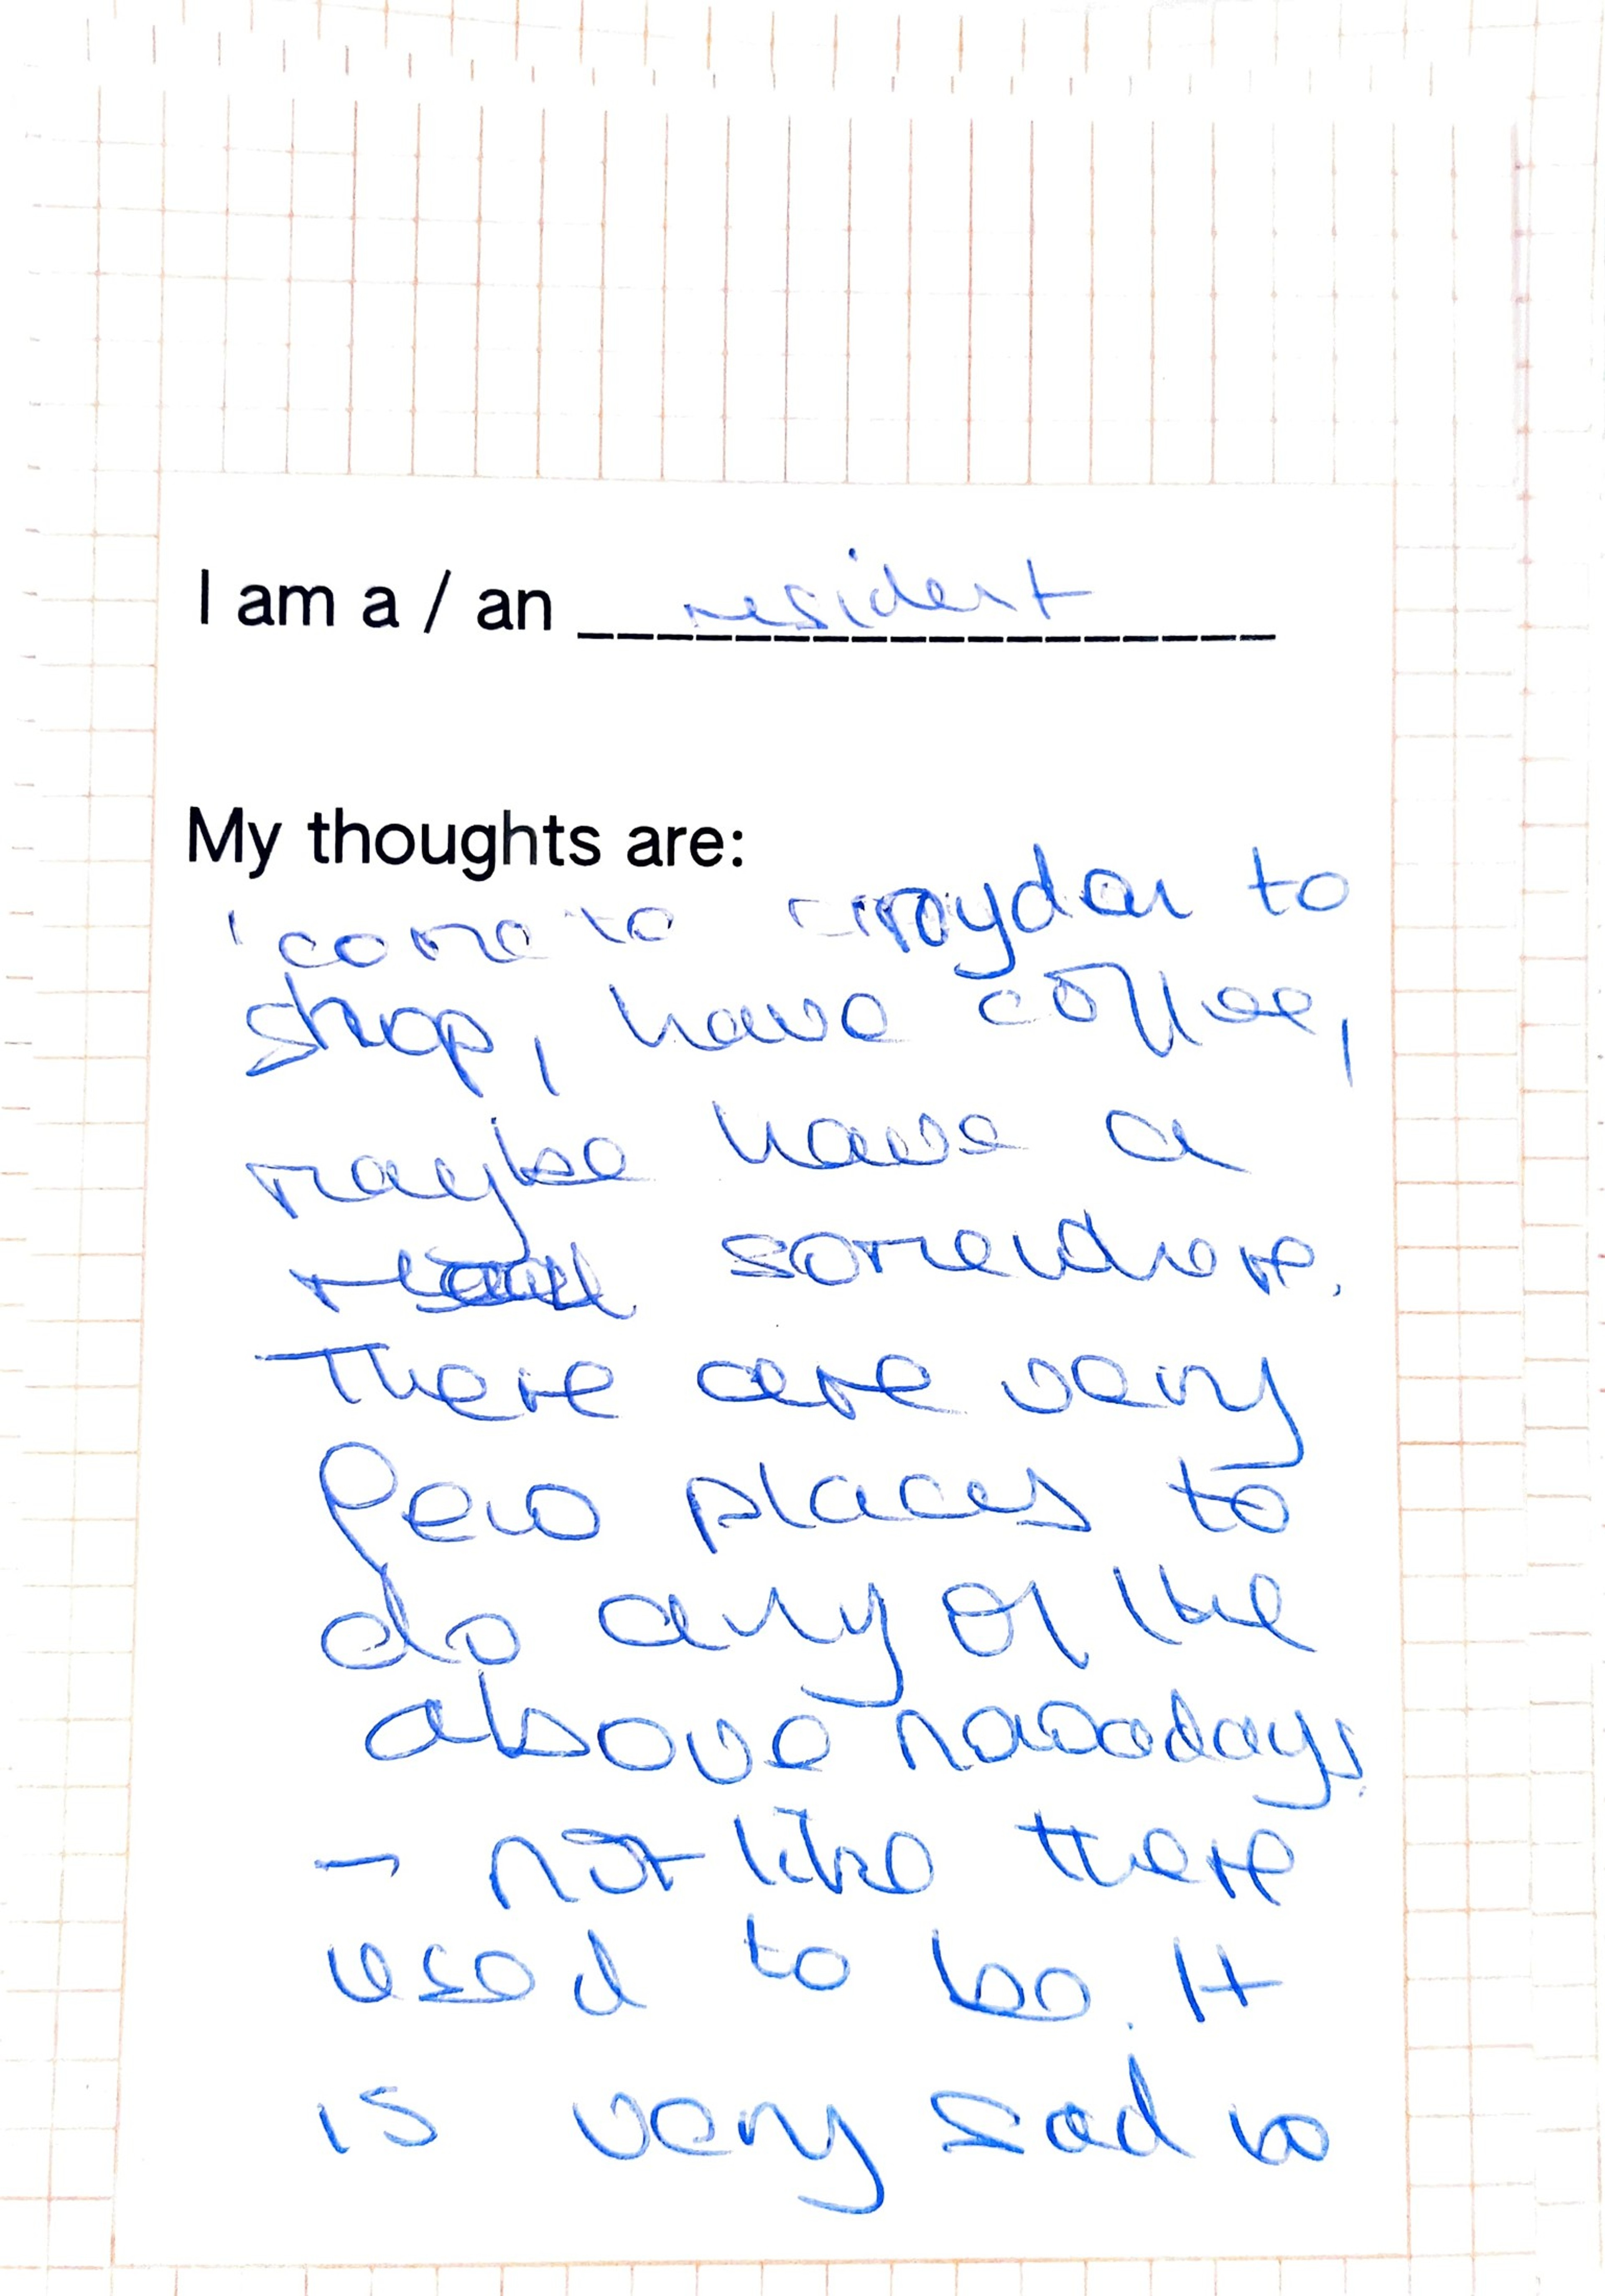 I am a / an resident
My thoughts are:
I come to Croydon to
shop, have coffee,
maybe have a
meal somewhere.
There are very
few places to
do any of the
above nowadays.
- not like there
used to be. It
is very sad to